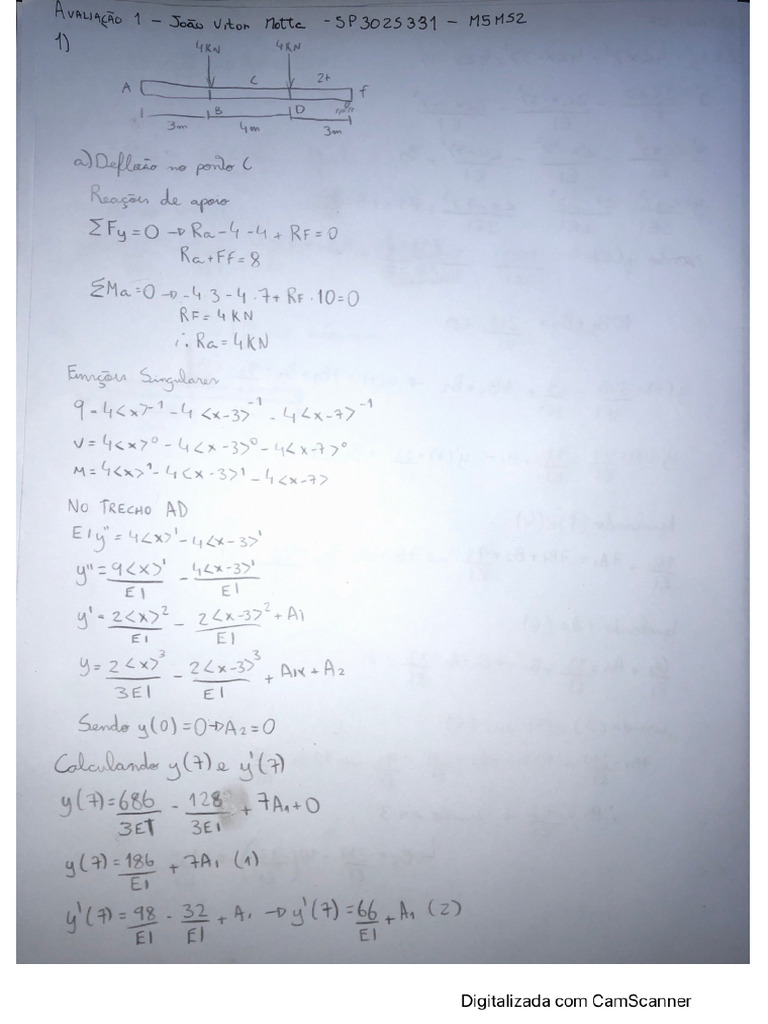 AVALIAÇÃO 1 - João Vitor Motta - SP3025331 - M5MS2
1)
4KN 4KN
A C 2I F
B D
3m 4m 3m
a) Deflexão no ponto C
Reações de apoio
ΣFy=0 → Ra-4-4+RF=0
Ra+Ff=8
ΣMa=0 → -4.3-4.7+RF.10=0
RF=4KN
∴ Ra=4KN
Funções Singulares
q=4<x>⁻¹-4<x-3>⁻¹-4<x-7>⁻¹
V=4<x>⁰-4<x-3>⁰-4<x-7>⁰
M=4<x>¹-4<x-3>¹-4<x-7>
NO TRECHO AD
EIy"=4<x>¹-4<x-3>¹
y"=9<x>¹/EI - 4<x-3>¹/EI
y'=2<x>²/EI - 2<x-3>²/EI + A1
y=2<x>³/3EI - 2<x-3>³/EI + A1x + A2
Sendo y(0)=0 → A2=0
Calculando y(7) e y'(7)
y(7)=686/3EI - 128/3EI + 7A1+0
y(7)=186/EI + 7A1 (1)
y'(7)=98/EI - 32/EI + A1 → y'(7)=66/EI + A1 (2)
Digitalizada com CamScanner